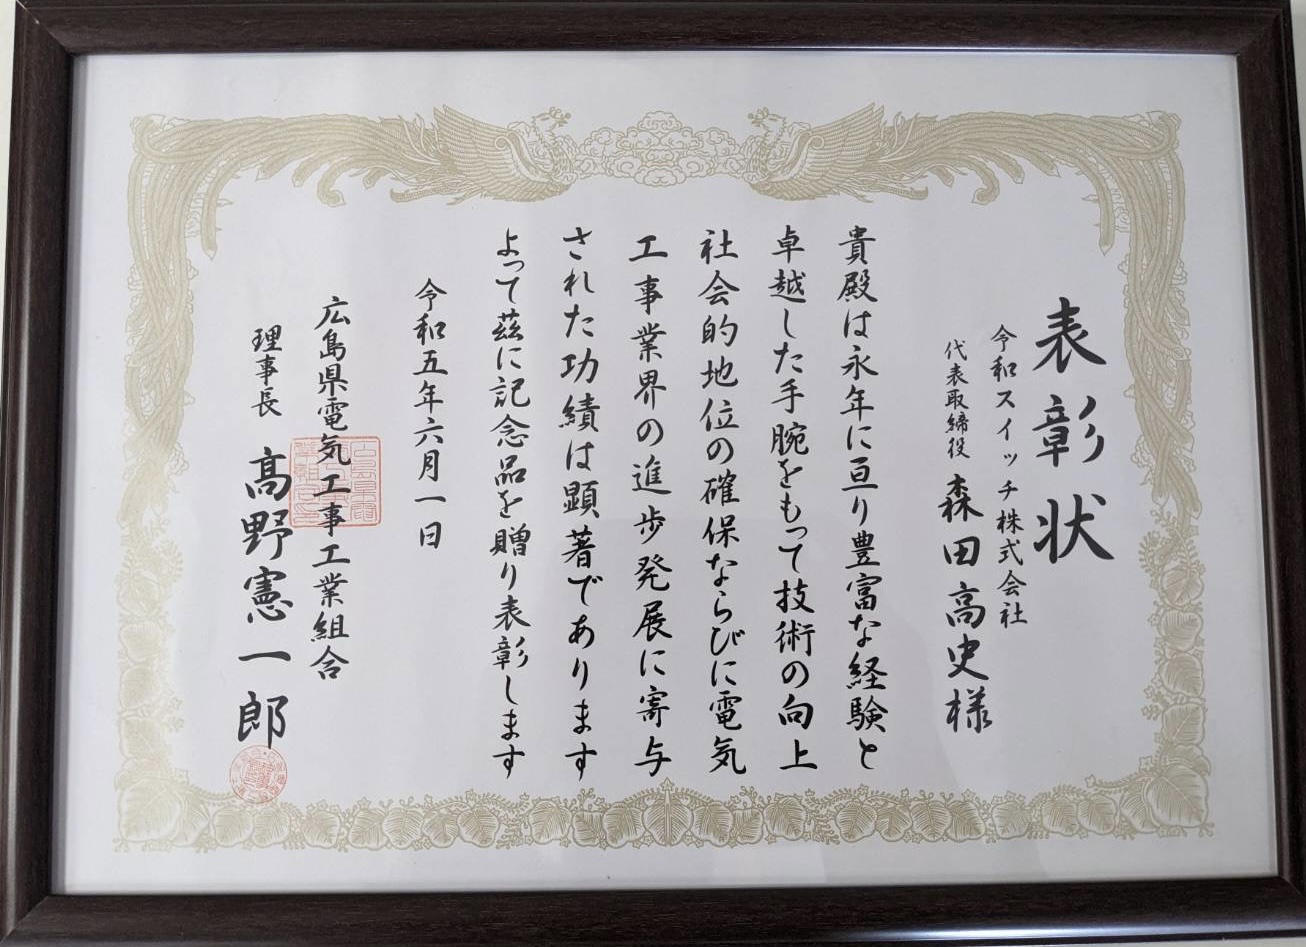 表彰状
令和スイッチ株式会社
代表取締役 森田高史様
貴殿は永年に亘り豊富な経験と
卓越した手腕をもって技術の向上
社会的地位の確保ならびに電気
工事業界の進歩発展に寄与
された功績は顕著であります
よって茲に記念品を贈り表彰します
令和五年六月一日
広島県電気工事工業組合
理事長 髙野憲一郎